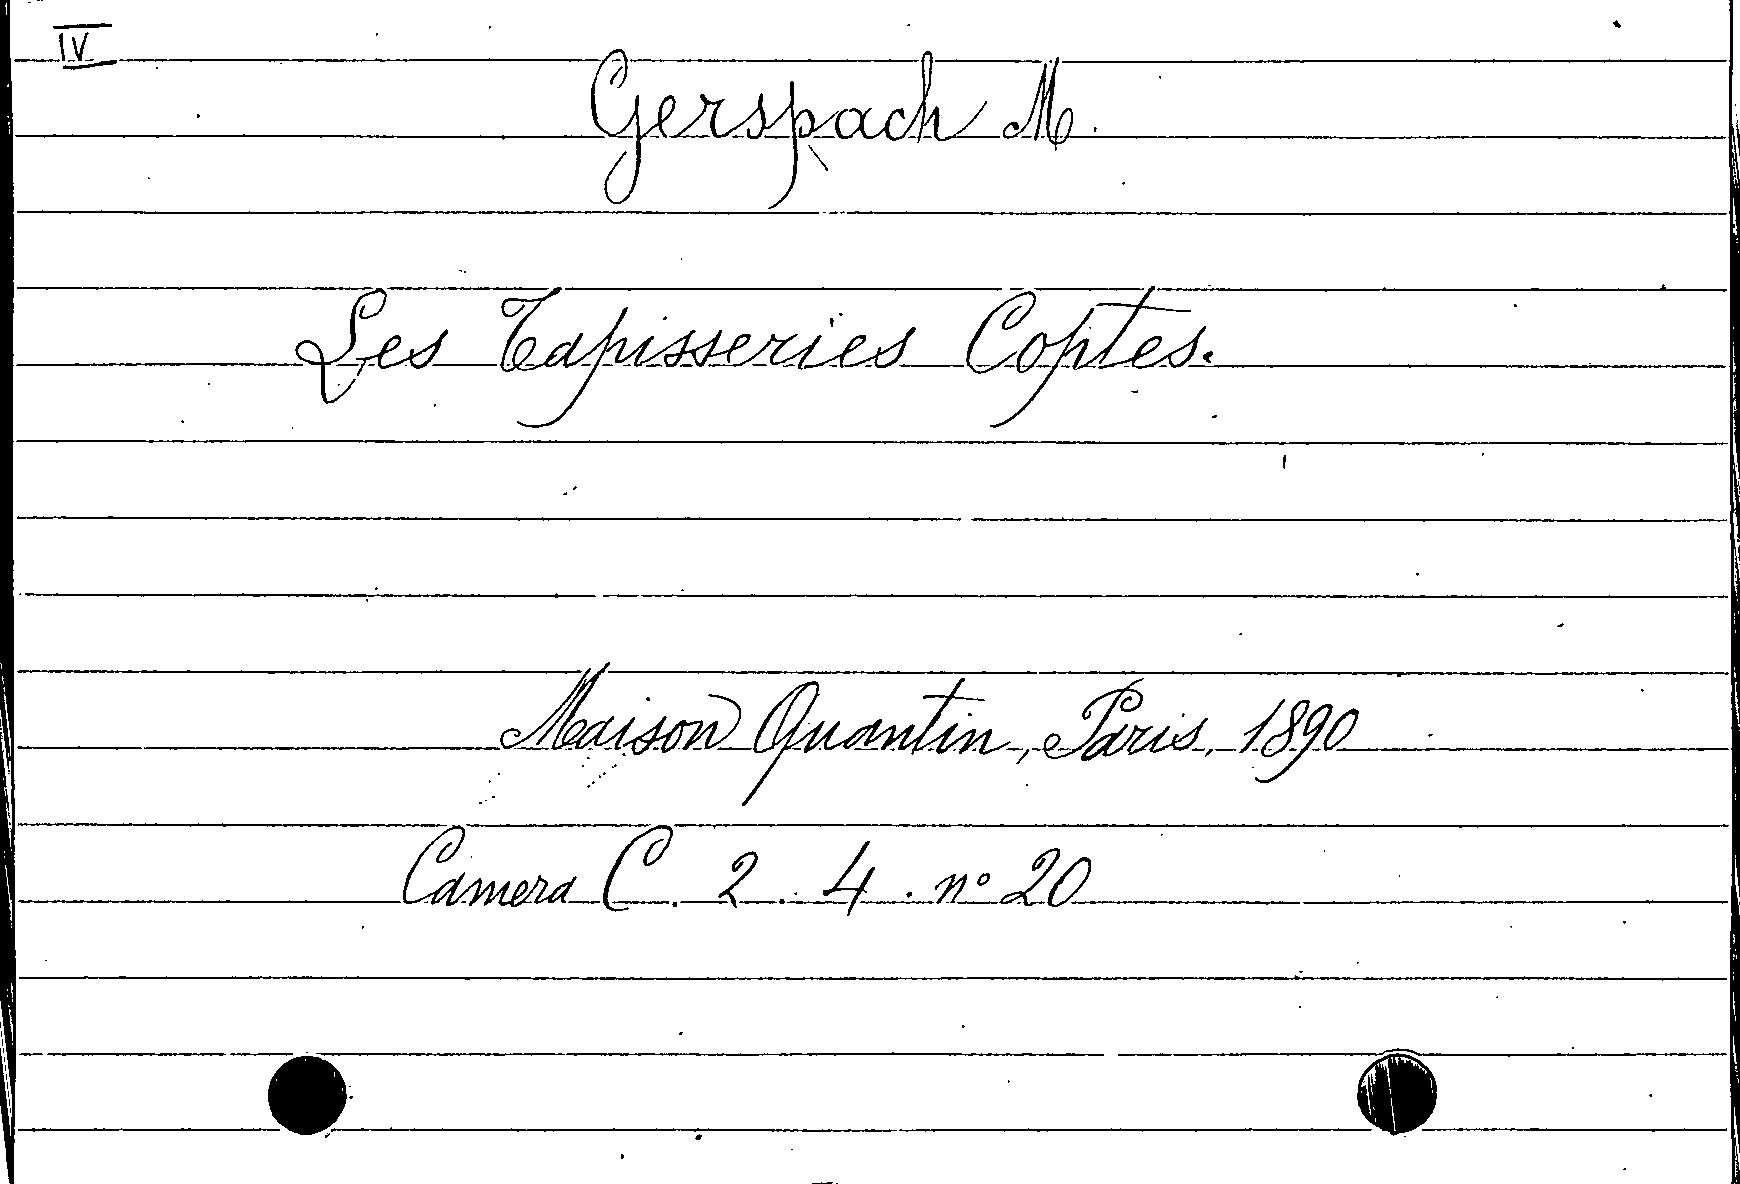 IV
Gerspach M.
Les Tapisseries Coptes.
Maison Quantin, Paris, 1890
Camera C. 2. 4. n° 20